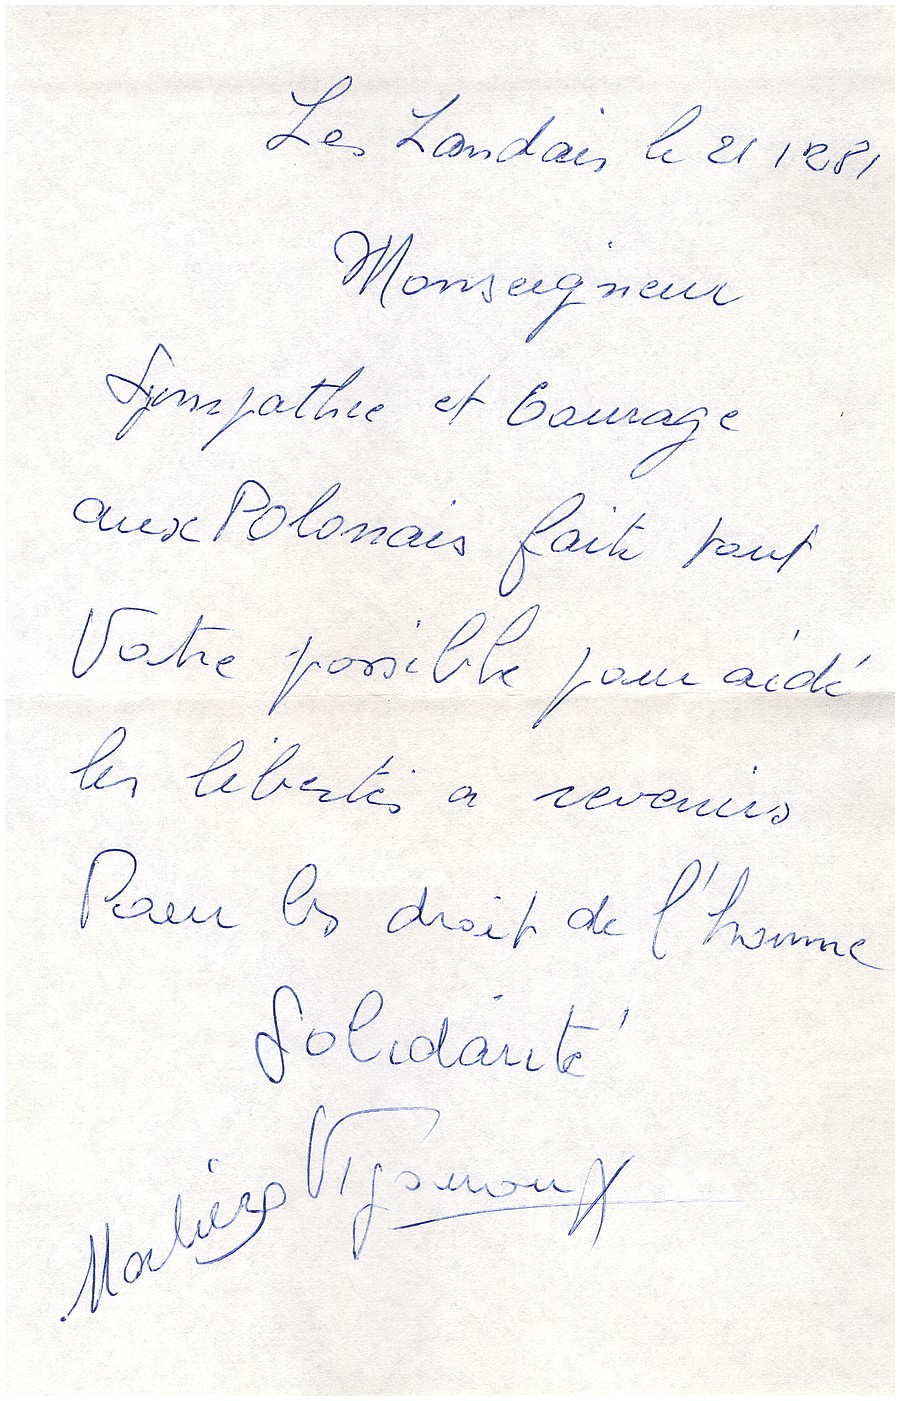 Les Landais le 21 12 81
Monseigneur
Sympathie et Courage
aux Polonais faite tout
Votre possible pour aidé
les libertés a revenir
Pour les droit de l'homme
Solidarité
Vigouroux